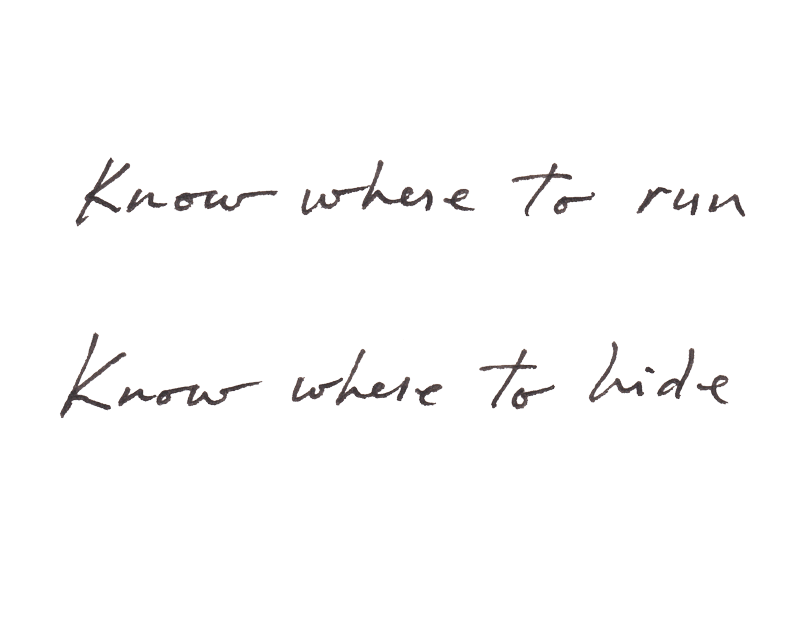 Know where to run
Know where to hide